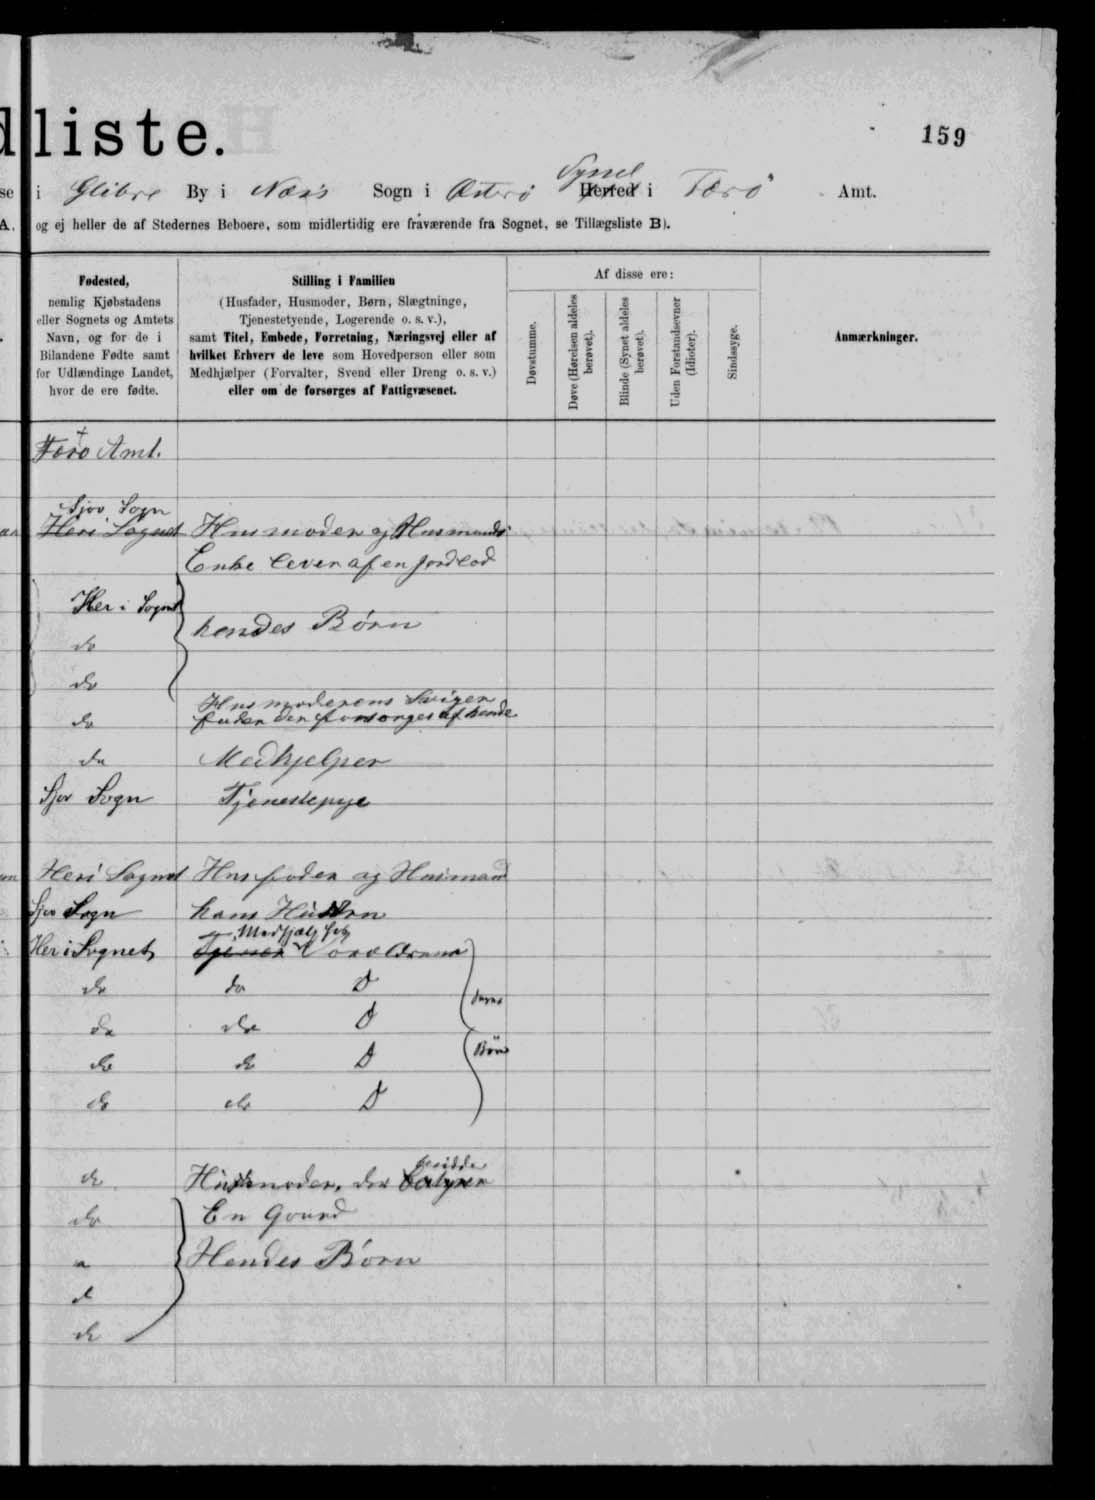 dliste.
159
se i Glibre By i Næs's Sogn i Østerø Syssel Herred i Færø Amt.
A. og ej heller de af Stedernes Beboere, som midlertidig ere fraværende fra Sognet, se Tillægsliste B).
Fødested,
nemlig Kjøbstadens
eller Sognets og Amtets
Navn, og for de i
Bilandene Fødte samt
for Udlændinge Landet,
hvor de ere fødte.
Stilling i Familien
(Husfader, Husmoder, Børn, Slægtninge,
Tjenestetyende, Logerende o. s. v.),
samt Titel, Embede, Forretning, Næringsvej eller af
hvilket Erhverv de leve som Hovedperson eller som
Medhjælper (Forvalter, Svend eller Dreng o. s. v.)
eller om de forsørges af Fattigvæsenet.
Af disse ere:
Døvstumme.
Døve (Hørelsen aldeles
berøvet).
Blinde (Synet aldeles
berøvet).
Uden Forstandsevner
(Idioter).
Sindssyge.
Anmærkninger.
Færø Amt.
Sjov Sogn
Her i Sognet Husmoder og Husmands
Enke lever af en Jordlod
Her i Sognet
hendes Børn
do
do
Husmoderens Sviger
do fader der forsørges af hende
do Medhjelper
Sjov Sogn Tjenestepige
Her i Sognet Husfader og Husmand
Sjov Sogn hans Hustru
Her i Sognet Medhjælp for Forældrene
do do D
do do D
deres
do do D
Børn
do do D
do Husmoder, der besidder
do En Gaard
Hendes Børn
d
do